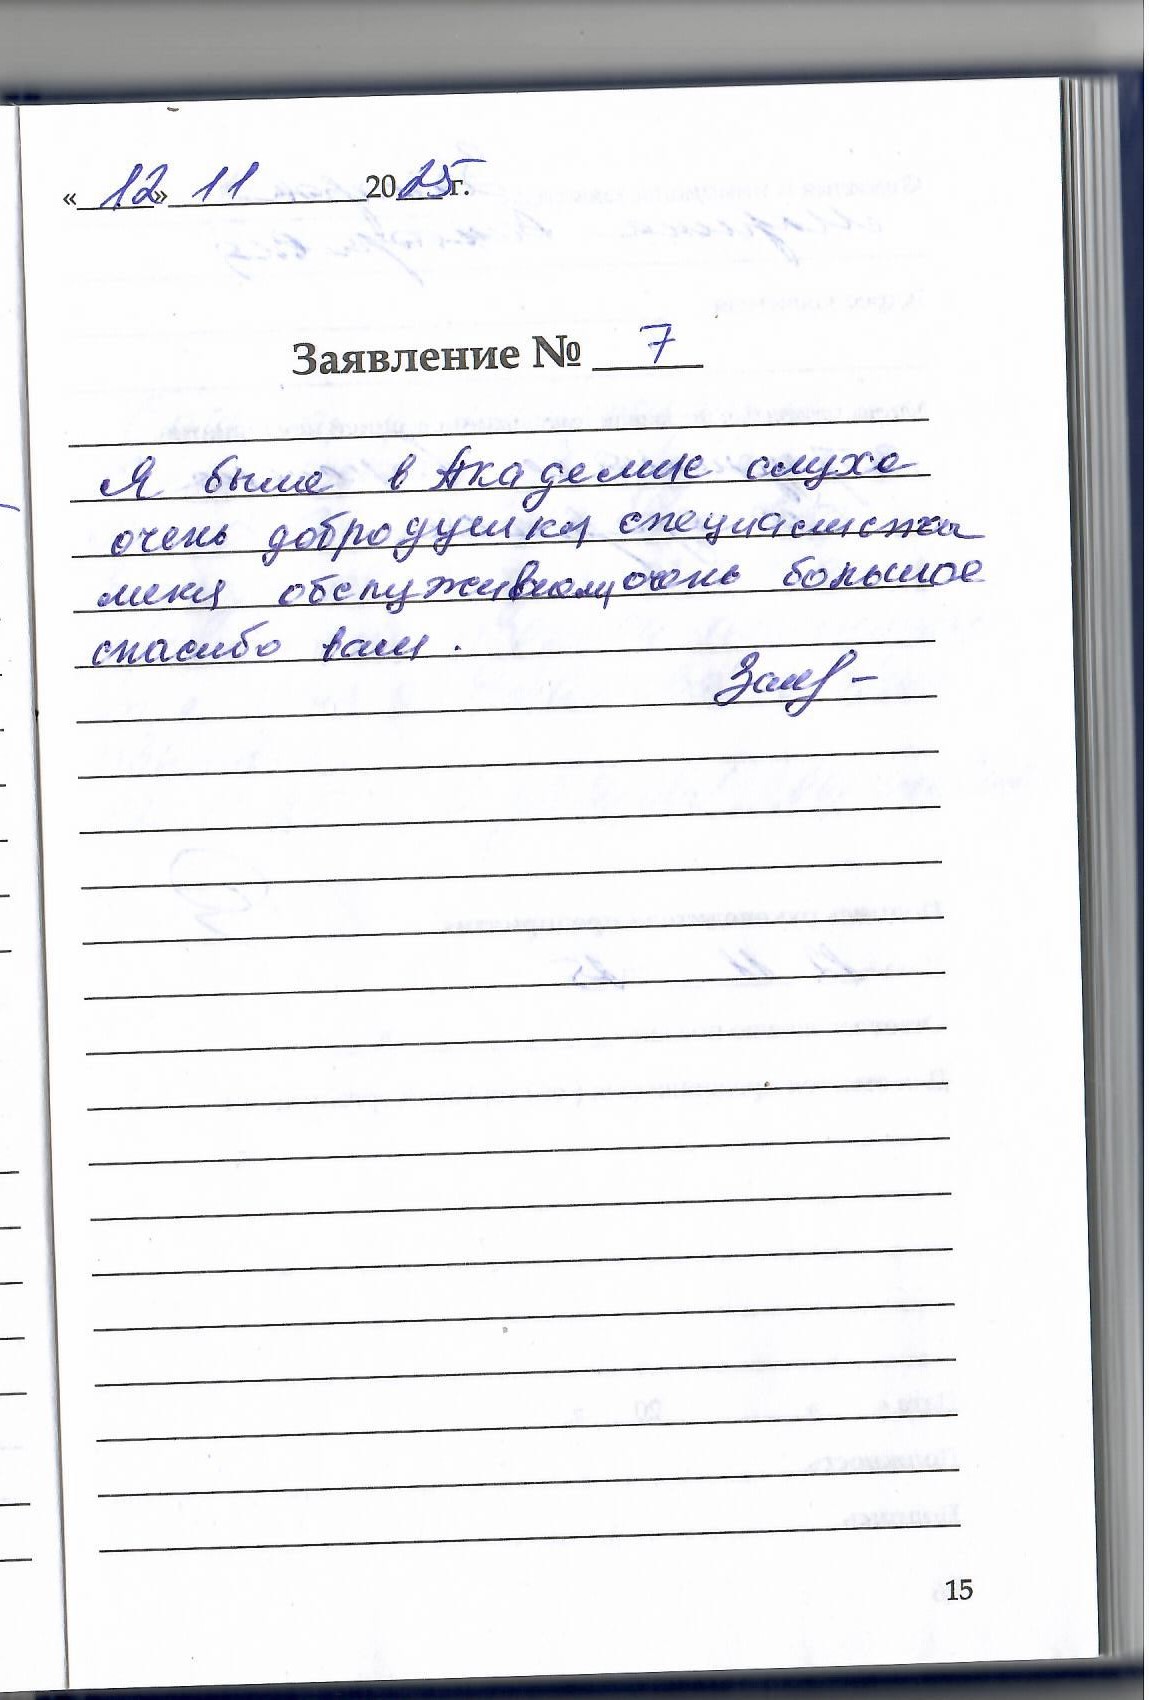 «12» 11 2025г.
Заявление № 7
Я была в Академие слуха
очень добродушкя специалистка
меня обслуживало, очень большое
спасибо вам.
15